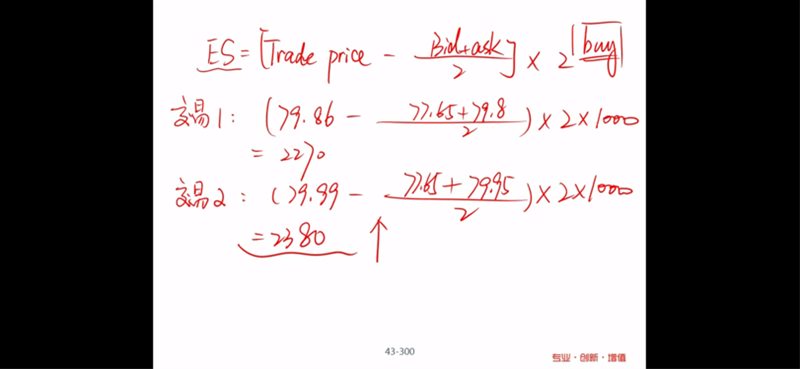 ES = [Trade price - (Bid+ask)/2] × 2 | buy
交易1: (79.86 - (77.65+79.8)/2) × 2 × 1000
= 2270
交易2: (79.99 - (77.65+79.95)/2) × 2 × 1000
= 2380 ↑
43-300
专业·创新·增值